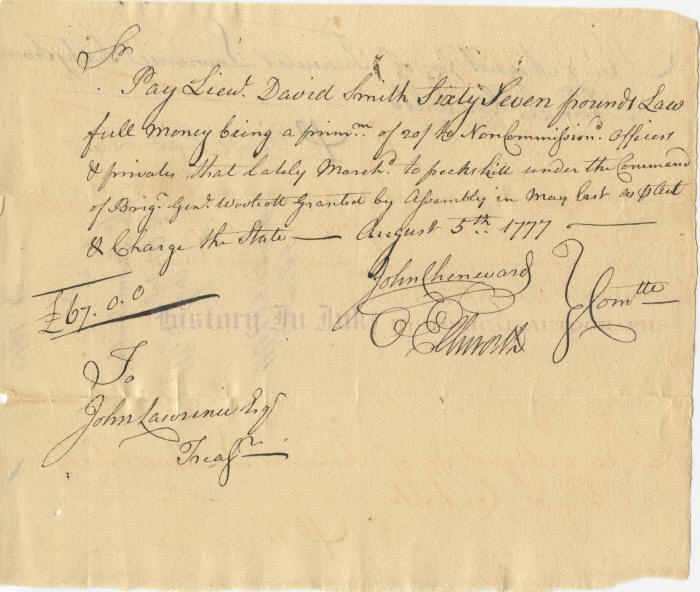 Sr
Pay Lieut. David Smith Sixty Seven pounds Law
full Money being a prim.m of 20/ to NonCommission.d Officers
& privates that lately March.d to peekskill under the Command
of Brig.r Gen.l Woolcott Granted by Assembly in May last as Act
& Charge the State — August 5th 1777
John Chenward
O Ellsworth
Comtte
£67.0.0
History In Ink
HISTORICAL AUTOGRAPHS
To
John Lawrence Esq
Treasr